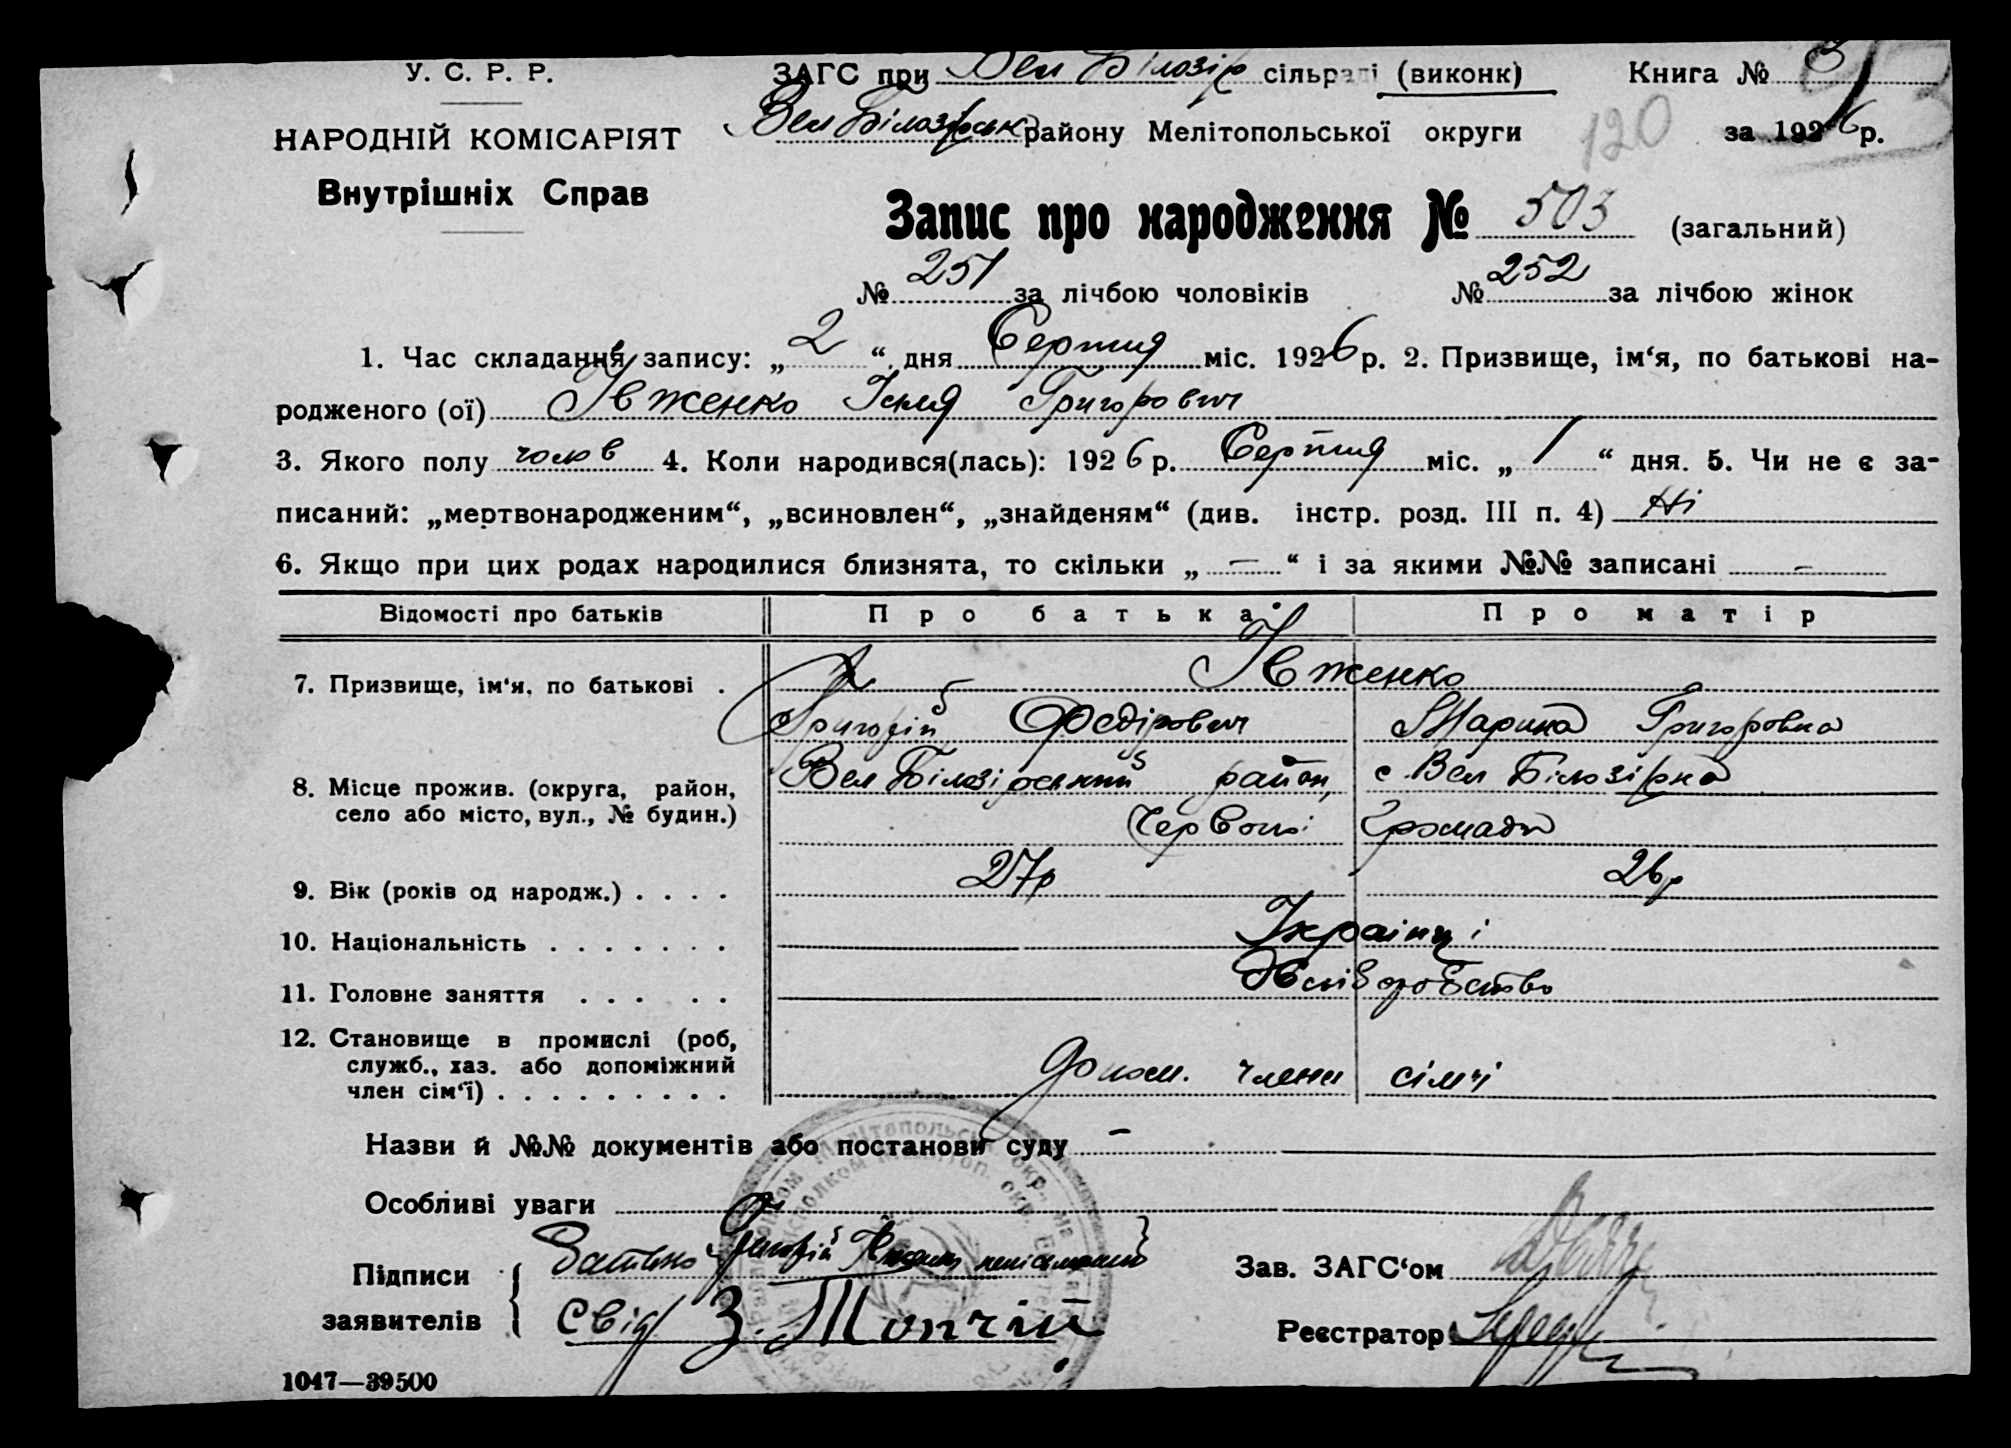 У. С. Р. Р. ЗАГС при Вел Білозір сільраді (виконк) Книга № 3
НАРОДНІЙ КОМІСАРІЯТ Вел Білозірськ району Мелітопольської округи 120 за 1926 р.
Внутрішніх Справ
Запис про народження № 503 (загальний)
№ 251 за лічбою чоловіків № 252 за лічбою жінок
1. Час складання запису: „ 2 “ дня Серпня міс. 1926 р. 2. Призвище, ім‘я, по батькові на-
родженого (ої) Івженко Григорович
3. Якого полу чолов 4. Коли народився(лась): 1926 р. Серпня міс. „ 1 “ дня. 5. Чи не є за-
писаний: „мертвонародженим“, „всиновлен“, „знайденям“ (див. інстр. розд. III п. 4) Ні
6. Якщо при цих родах народилися близнята, то скільки „ — “ і за якими №№ записані —
Відомості про батьків Про батька Про матір
7. Призвище, ім‘я, по батькові . Івженко
Григорій Федірович Марина Григоровна
8. Місце прожив. (округа, район, Вел Білозірський район, с. Вел Білозірка
село або місто, вул., № будин.) Червоної Громади
9. Вік (років од народж.) . . . . 27р 26р
10. Національність . . . . . . . Українці
11. Головне заняття . . . . . Хліборобство
12. Становище в промислі (роб,
служб., хаз. або допоміжний
член сім‘ї) . . . . . . . . . допом. члени сімʼї
Назви й №№ документів або постанови суду —
Особливі уваги
Підписи Батько Григорій неписьменний Зав. ЗАГС‘ом
заявителів Свід З. Топчій Реєстратор
1047—39500